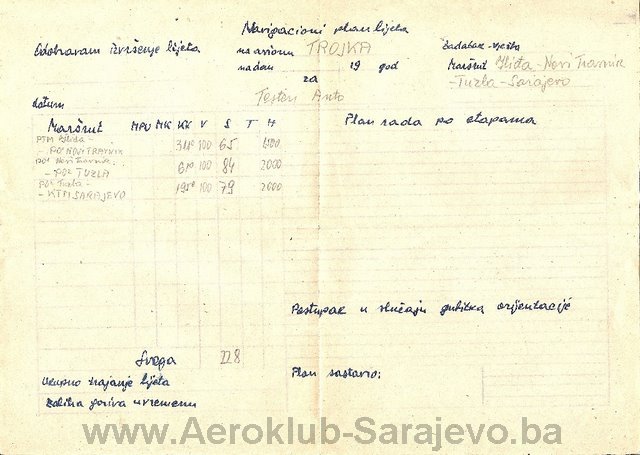 Navigacioni plan lijeta
Odobravam izvršenje lijeta
na avionu TROJKA
Zadatak - vježba
na dan 19 god
Maršrut Ilidža - Novi Travnik
za
- Tuzla - Sarajevo
Anto
datum
Maršrut MPU MK KK V S T H
Plan rada po etapama
PTM Ilidža 310 100 65 400
- POC NOVI TRAVNIK
POC Novi Travnik 100 84 2000
- POC TUZLA
POC Tuzla - 195° 100 79 2000
- KTM SARAJEVO
Postupak u slučaju gubitka orijentacije
Svega 228
Plan sastavio:
Ukupno trajanje lijeta
Zaliha goriva u vremenu
www.Aeroklub-Sarajevo.ba